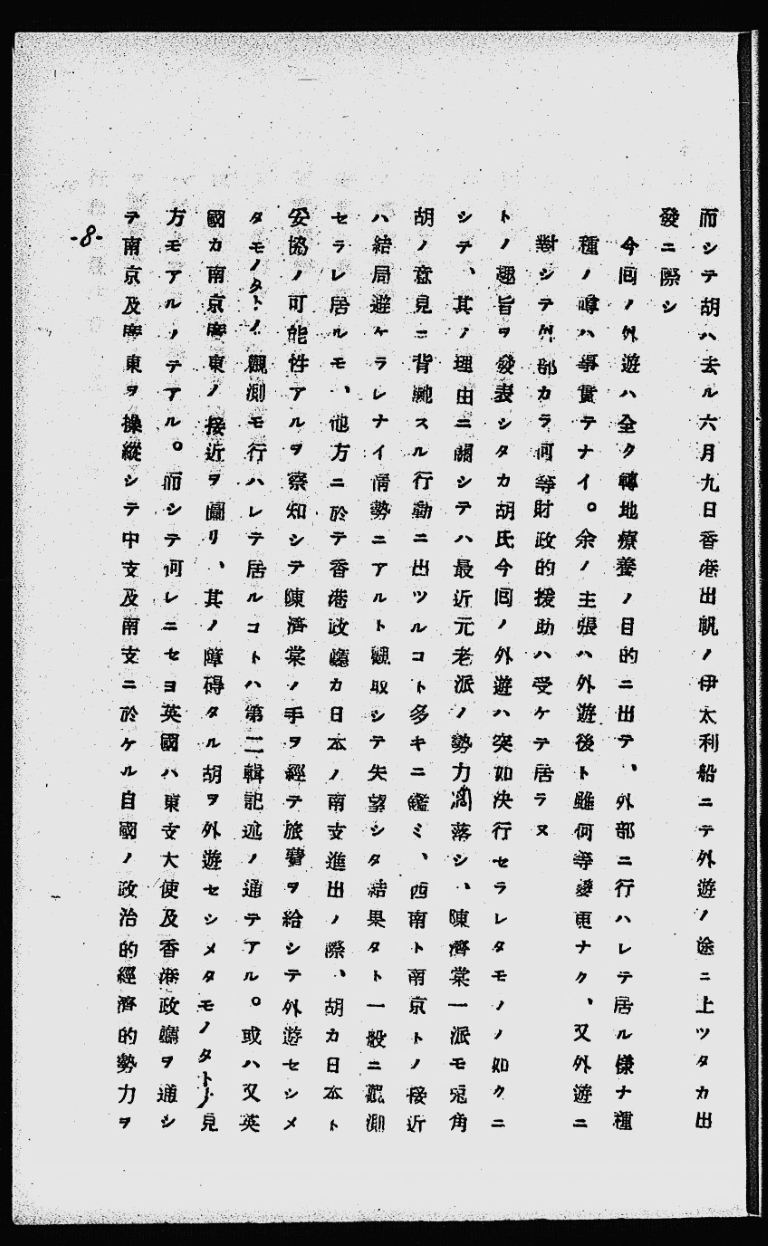 而シテ胡ハ去ル六月九日香港出帆ノ伊太利船ニテ外遊ノ途ニ上ツタカ出
發ニ際シ
今回ノ外遊ハ全ク轉地療養ノ目的ニ出テ、外部ニ行ハレテ居ル樣ナ種
種ノ噂ハ事實テナイ。余ノ主張ハ外遊後ト雖何等變更ナク、又外遊ニ
對シテ外部カラ何等財政的援助ハ受ケテ居ラヌ
トノ趣旨ヲ發表シタカ胡氏今回ノ外遊ハ突如決行セラレタモノノ如クニ
シテ、其ノ理由ニ關シテハ最近元老派ノ勢力凋落シ、陳濟棠一派モ兎角
胡ノ意見ニ背馳スル行動ニ出ツルコト多キニ鑑ミ、西南ト南京トノ接近
ハ結局避ケラレナイ情勢ニアルト觀取シテ失望シタ結果タト一般ニ觀測
セラレ居ルモ、他方ニ於テ香港政廳カ日本ノ南支進出ノ際、胡カ日本ト
妥協ノ可能性アルヲ察知シテ陳濟棠ノ手ヲ經テ旅費ヲ給シテ外遊セシメ
タモノタトノ觀測モ行ハレテ居ルコトハ第二輯記述ノ通テアル。或ハ又英
國カ南京廣東ノ接近ヲ圖リ、其ノ障碍タル胡ヲ外遊セシメタモノタトノ見
方モアルノテアル。而シテ何レニセヨ英國ハ東支大使及香港政廳ヲ通シ
テ南京及廣東ヲ操縱シテ中支及南支ニ於ケル自國ノ政治的經濟的勢力ヲ
-8-